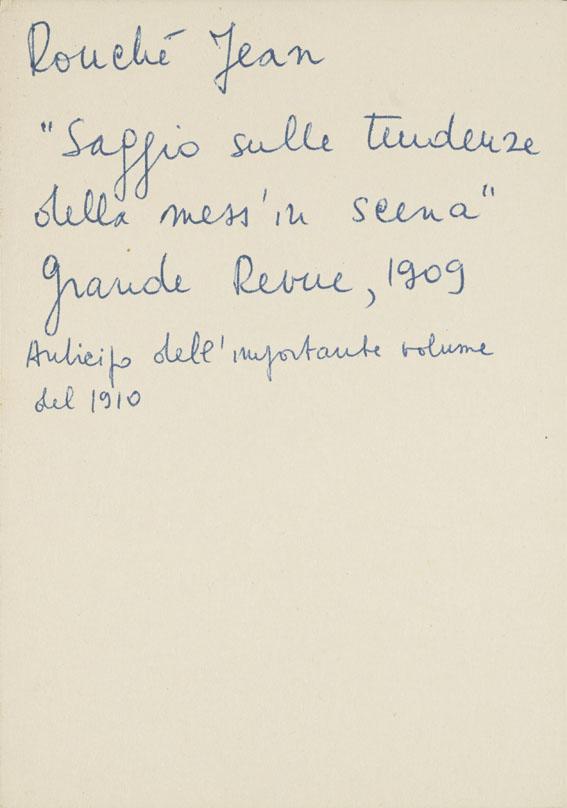 Rouché Jean
"Saggio sulle tendenze
della mess'in scena"
Grande Revue, 1909
Anticipo dell'importante volume
del 1910